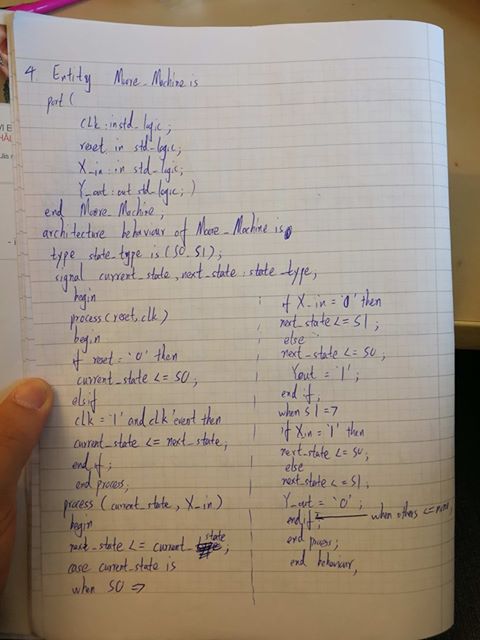 4 Entity Moore_Machine is
port (
clk : in std_logic ;
reset in std_logic ;
X_in : in std_logic ;
Y_out : out std_logic ; )
end Moore_Machine ;
architecture behaviour of Moore_Machine is
type state_type is (S0, S1) ;
signal current_state , next_state : state_type ;
begin
process (reset, clk)
begin
if reset = '0' then
current_state <= S0 ;
elsif
clk = '1' and clk 'event then
current_state <= next_state ;
end if ;
end process ;
process ( current_state , X_in )
begin
next_state <= current_state ;
case current_state is
when S0 =>
if X_in = '0' then
next_state <= S1 ;
else
next_state <= S0 ;
Yout = '1' ;
end if ;
when S1 =>
if X_in = '1' then
next_state <= S0 ;
else
next_state <= S1 ;
Y_out = '0' ;
end if ; when others <=
end process ;
end behaviour ,